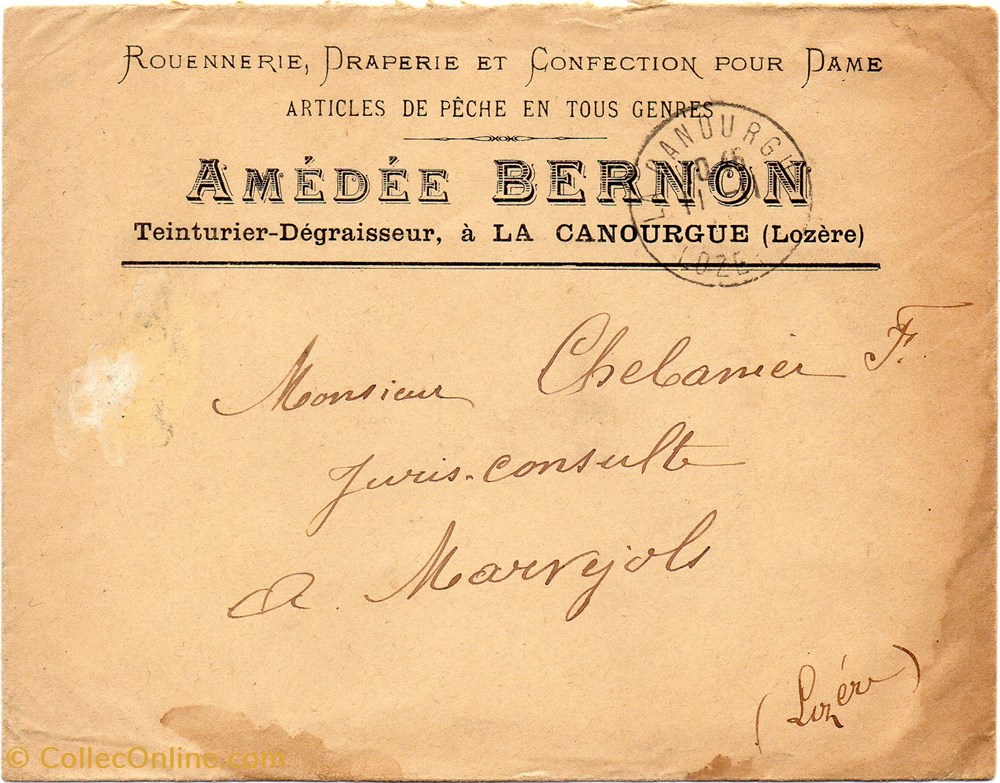 ROUENNERIE, DRAPERIE ET CONFECTION POUR DAME
ARTICLES DE PÊCHE EN TOUS GENRES
AMÉDÉE BERNON
Teinturier-Dégraisseur, à LA CANOURGUE (Lozère)
LA CANOURGUE
LOZE
Monsieur Chebanier F.
Juris-consulte
a Marvejols
(Lozère)
© CollecOnline.com